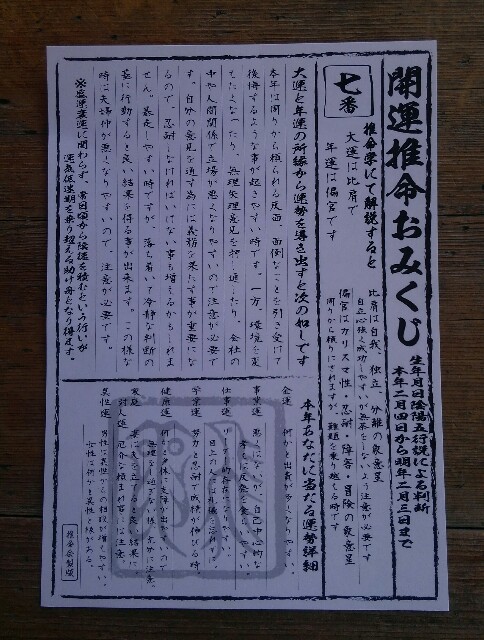 開運推命おみくじ
生年月日陰陽五行説による判断
本年二月四日から明年二月三日まで
七番
推命学にて解説すると
大運は比肩で
年運は偏官です
比肩は自我、独立、分離の象意星
自立心強く成功しやすいが無茶をしないよう注意が必要です
偏官はカリスマ性・忍耐・障害・冒険の象意星
周りから頼りにされますが、難題を乗り越える時です
大運と年運の所縁から運勢を導き出すと次の如しです
本年は周りから頼られる反面、面倒なことを引き受けて
後悔するような事が起きやすい時です。一方、環境を変
えたくなったり、無理矢理意見を押し通したり、会社の
中や人間関係で立場が悪くなりやすいので注意が必要で
す。自分の意見を通す為には義務を果たす事が重要にな
るので、忍耐しなければいけない事も増えるかもしれま
せん。暴走しやすい時ですが、落ち着いて冷静な判断の
基に行動すると良い結果を得る事が出来ます。この様な
時は夫婦仲が悪くなりやすいので、注意が必要です。
栄盛運衰運に関わらず、常日頃から陰徳を積むという行いが
運気低迷期を乗り越える助け舟となり得ます
本年あなたに当たる運勢詳細
金運 何かと出費が多くなりやすい。
事業運 悪くはないが、自己中心的な
考えは反発を食らいやすい。
仕事運 リーダー的存在になりやすい。
目上の人には謙虚に。
学業運 努力と忍耐で成績が伸びる時。
健康運 何かと体に支障が出やすいので
無理をし過ぎない様、充分に注意。
家庭 妻は夫を立てると良い結果に。
対人運 厄介な頼まれ事には注意。
異性運 男性は異性からの相談が増えやすい。
女性は何かと異性と縁がある。
推命会製版